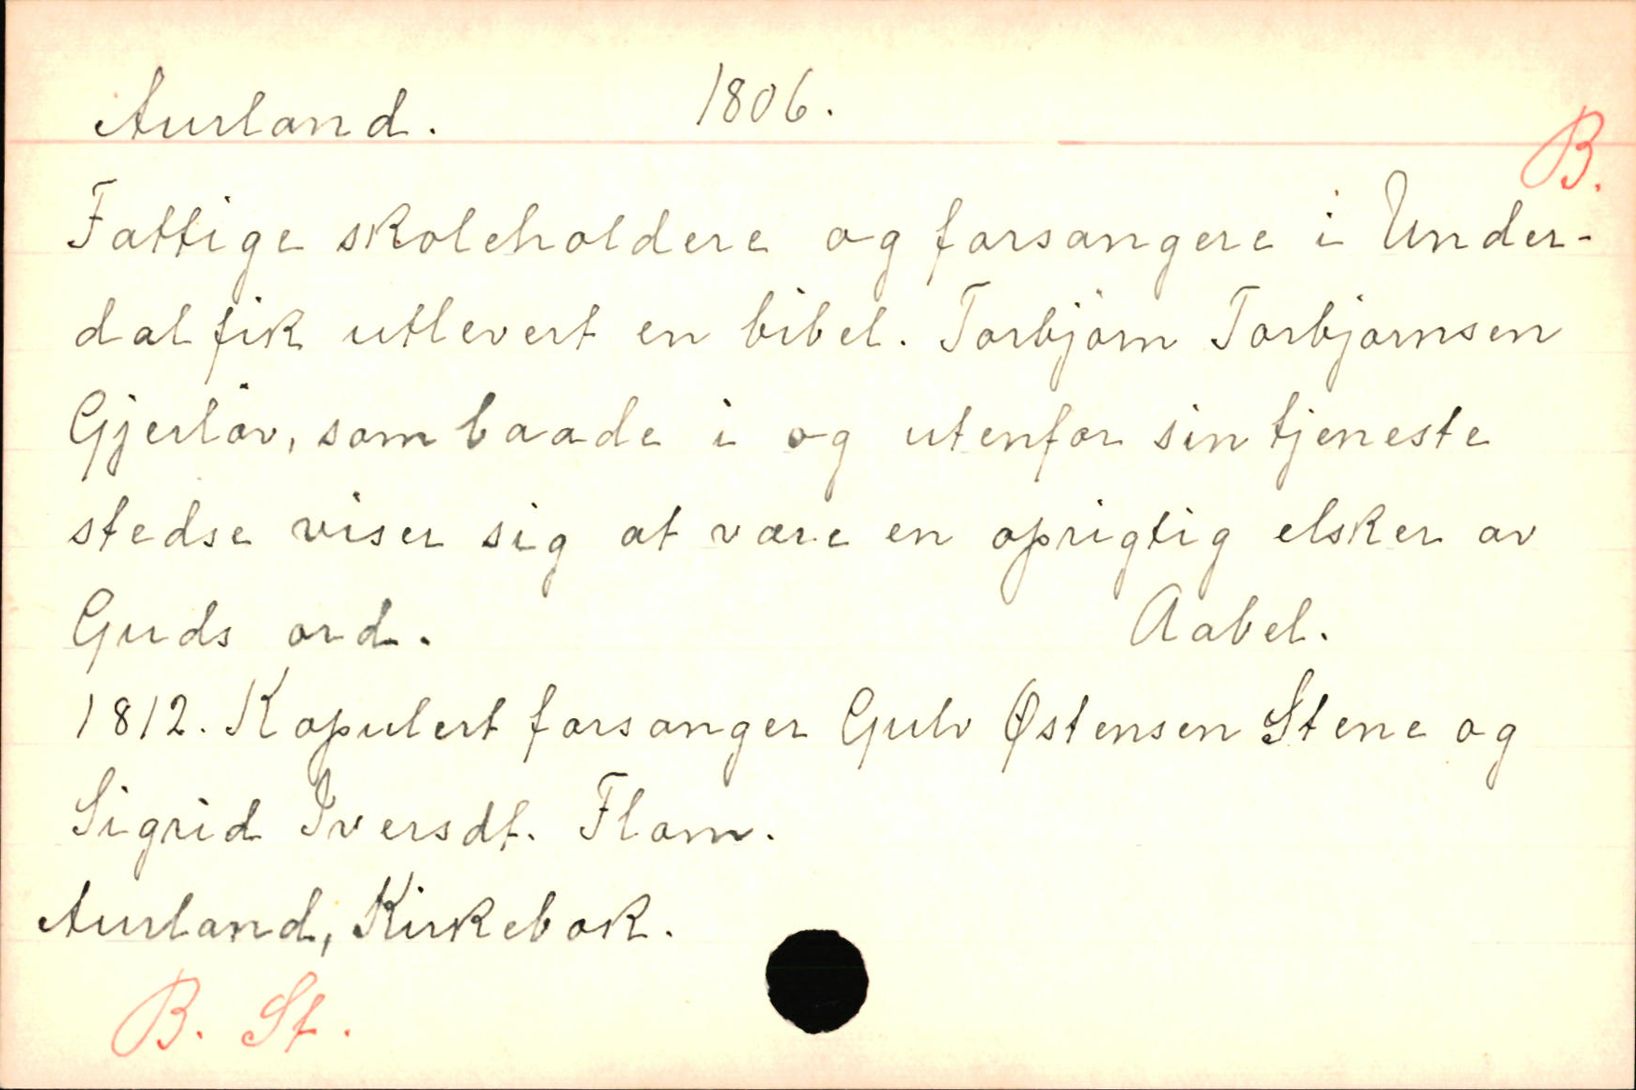 Aurland. 1806.
B.
Fattige skoleholdere og forsangere i Under-
dal fik utlevert en bibel. Torbjörn Torbjornsen
Gjerlöv, som baade i og utenfor sin tjeneste
stedse viser sig at være en oprigtig elsker av
Guds ord. Aabel.
1812. Kopulert forsanger Gulv Østensen Stene og
Sigrid Iversdt. Flom.
Aurland, Kirkebok.
B. St.